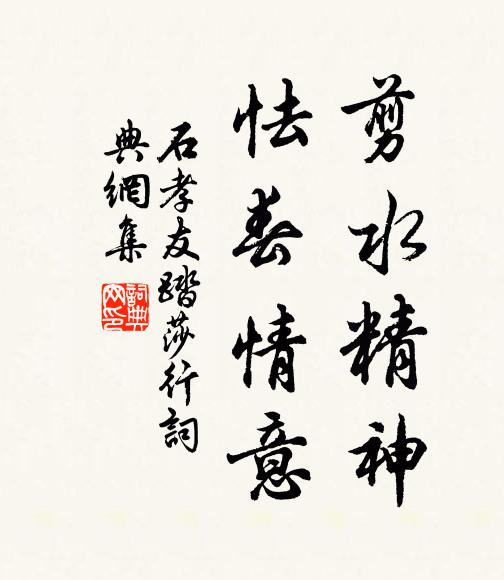 剪水精神
怯春情意
石孝友踏莎行詞
典網集
詞典網印